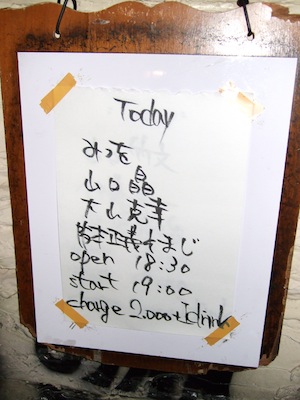 Today
みつを
山口晶
大山克幸
正義そまじ
open 18:30
start 19:00
charge 2.000+1drink